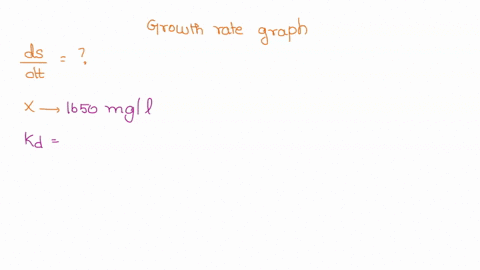 Growth rate graph
ds/dt = ?
x → 1650 mg/l
Kd =